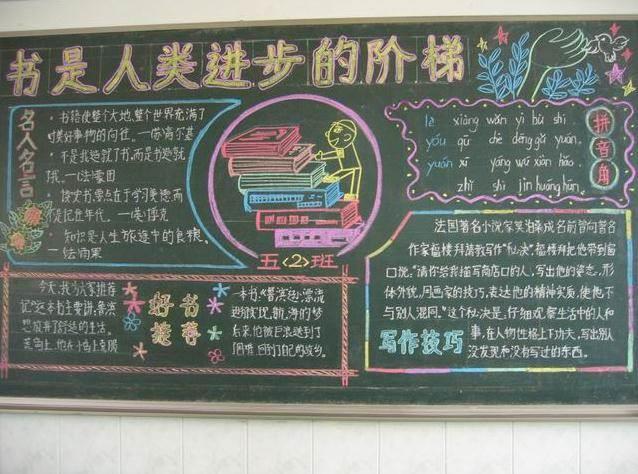 书是人类进步的阶梯
名人名言
·书籍使整个大地,整个世界充满了
对美好事物的向往。—俄·高尔基
·不是我造就了书,而是书造就
了我。—法·蒙田
·读史书要点在于学习美德而
徒记丘年代。—英·博克
·知识是人生旅途中的食粮。
—法·雨果
五<2>班
拼音角
xiàng wǎn yì bù shì
yōu qū chē dēng gǔ yuán
yuán xī yáng wú xiàn hǎo
zhǐ shì jìn huáng hūn
法国著名小说家莫泊桑成名前曾向著名
作家福楼拜请教写作"秘决"福楼拜把他带到窗
口说:"请你给我描写商店口的人,写出他的姿态,形
体外貌,用画家的技巧,表达他的精神实质,使他不
与别人混同。"这个秘决是:仔细观察生活中的人和
事,在人物性格上下功夫,写出别人
没发现和没有写过的东西。
写作技巧
好书推荐
今天,我为大家推荐
记"这本书主要讲:鲁滨
想放弃了舒适的生活。
一本书,"鲁滨逊漂流
逊被实现航海的梦
后来,他被巨浪送到了
困难,回到了自己的故乡。